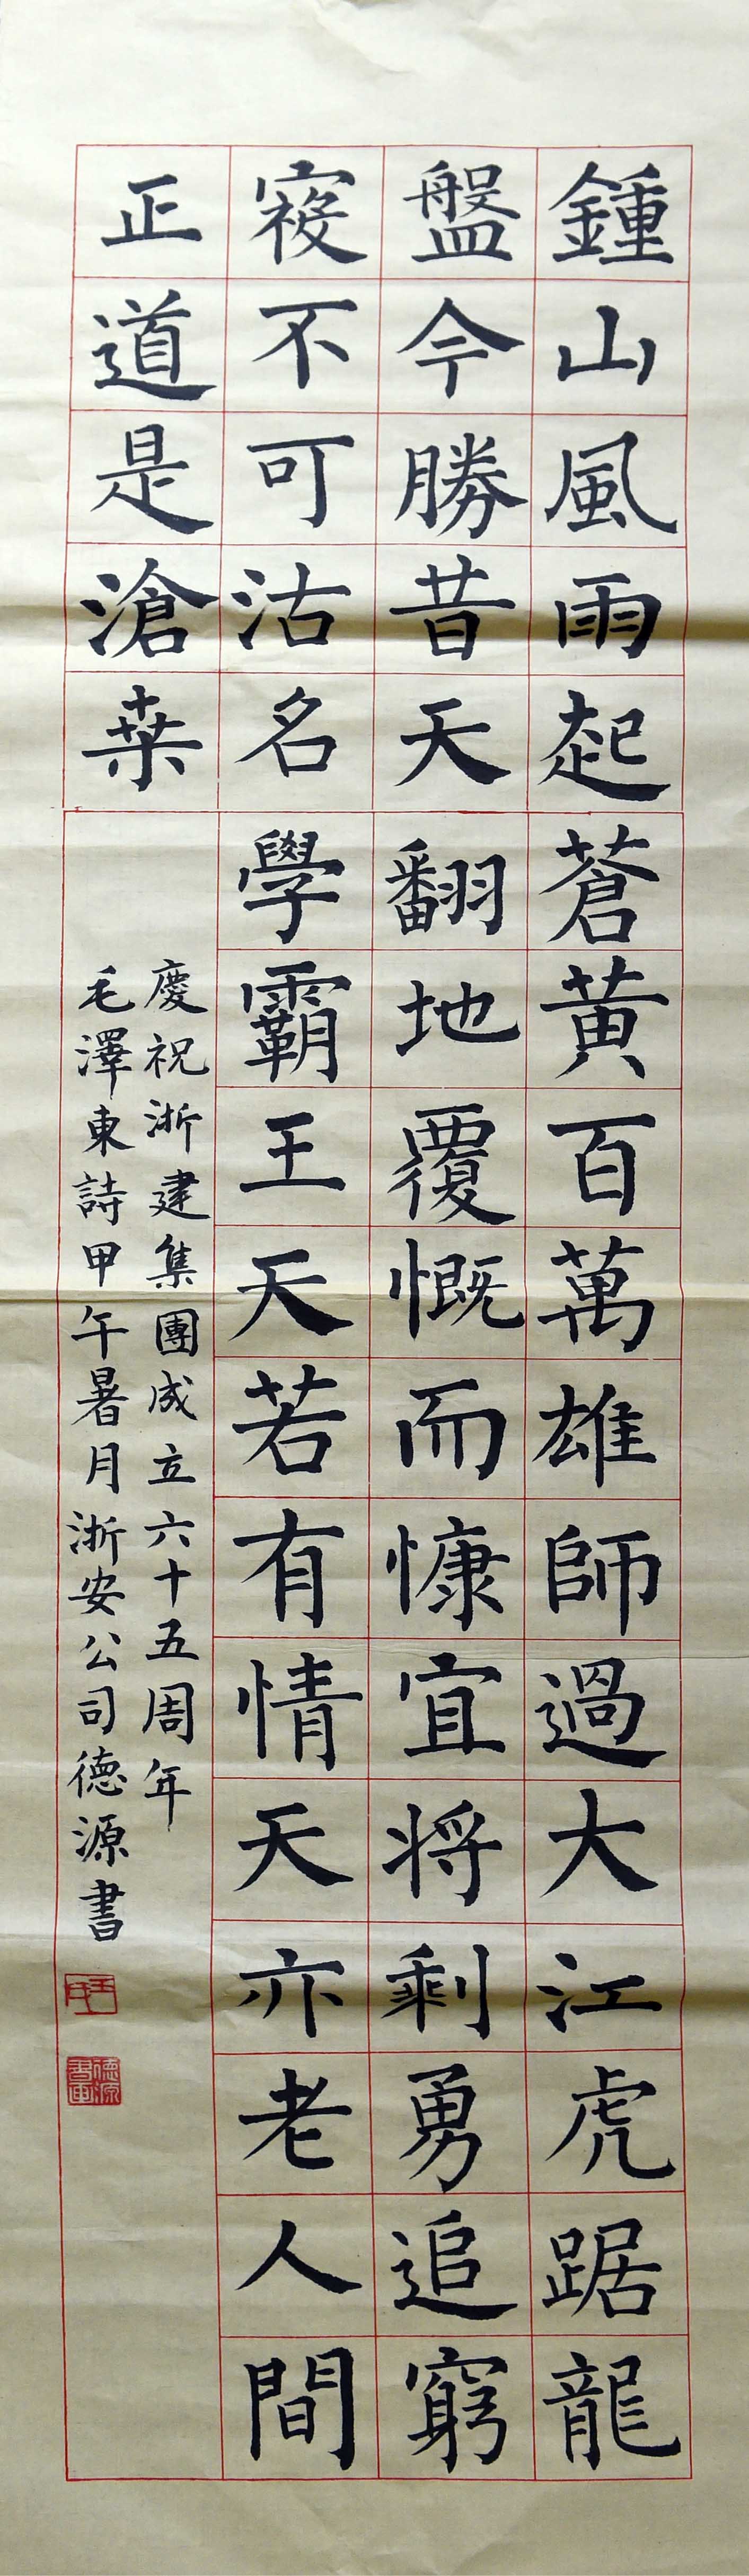 鍾山風雨起蒼黃百萬雄師過大江虎踞龍
盤今勝昔天翻地覆慨而慷宜将剩勇追窮
寇不可沽名學霸王天若有情天亦老人間
正道是滄桒
慶祝浙建集團成立六十五周年
毛澤東詩甲午暑月浙安公司德源書
德源書畫